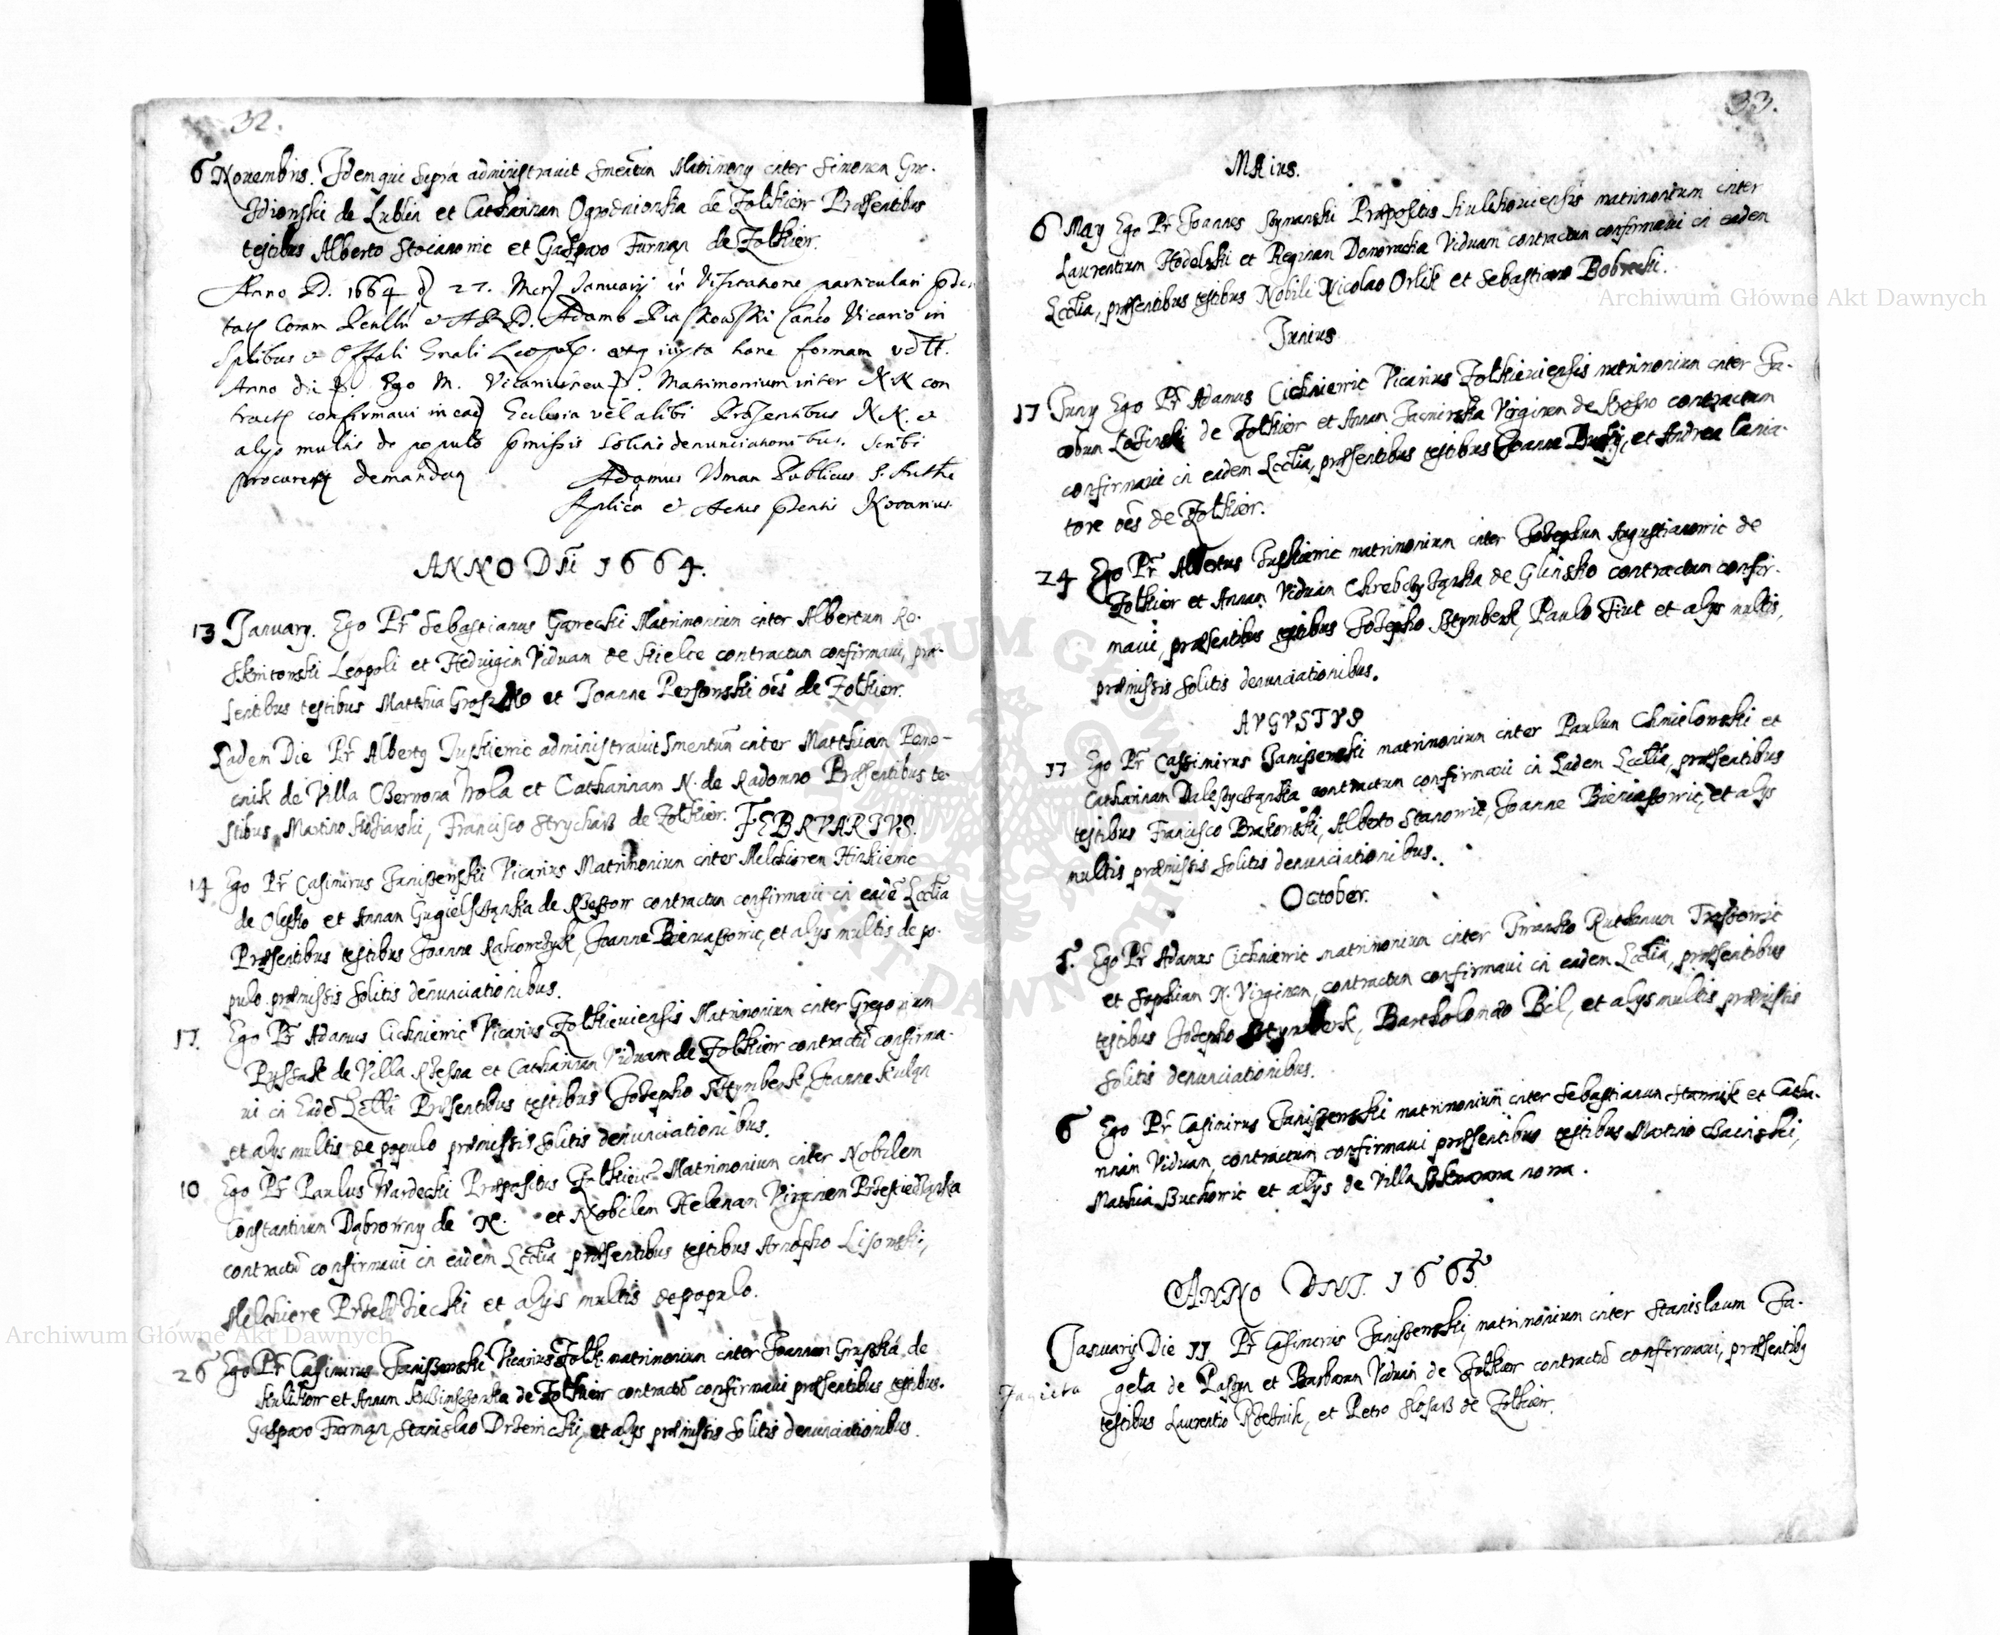 32.
6 Novembris. Idem qui supra administravit Smentum Matrimony inter Simonem Gro-
dzionski de Lublin et Catharinam Ogrodnionska de Zolkiew Præsentibus
testibus Alberto Stocianowic et Gasparo Furman de Zolkiew.
Anno D. 1664 d 27. Mens January in Visitatione particulari
coram Adamo Piaskowski Vicario in
Splibus et Offali Gnali Leopol. atq iuxta hanc formam
Anno dni Ego M. Vicarius seu P. Matrimonium inter N N con
tractu confirmavi in ead Ecclesia vel alibi Præsentibus N N. et
alys multis de populo pmissis solitis denunciationibus. scribi
procuret demandaq Adamus Uman Publicus S. Autht
Aplica et Actus pntis Notarius.
ANNO Dni 1664.
13 January. Ego Pr Sebastianus Garecki Matrimonium inter Albertum Ro-
skwitowski Leopoli et Hedvigim Viduam de Kielce contractum confirmavi, præ-
sentibus testibus Matthia Grosz et Joanne Persowski oēs de Zolkiew.
Eadem Die Pr Albertg Juskiewic administravit Smentum inter Matthiam Pomo-
cnik de Villa Berwona Wola et Catharinam N. de Radomno Præsentibus te-
stibus Martino Stoziarski, Francisco Strycharz de Zolkiew. FEBRVARIVS.
14 Ego Pr Casimirus Janiszewski Vicarius Matrimonium inter Melchiorem Hinkiewic
de Olesko et Annam Gugielsczanska de Rzeszow contractum confirmavi in eadē Ecclia
Præsentibus testibus Joanne Rakowczyk, Joanne Bieniaszowic, et alys multis de po-
pulo præmissis solitis denunciationibus.
17. Ego Pr Adamus Cichniewic Vicarius Zolkieviensis Matrimonium inter Gregorium
Pyssask de Villa Rzesna et Catharinam Viduam de Zolkiew contractū confirma-
vi in Eadē Eccli Præsentibus testibus Jozepho Sztymberk, Joanne Kulan
et alys multis de populo præmissis solitis denunciationibus.
10 Ego Pr Paulus Wardecki Præpositus Zolkiew: Matrimonium inter Nobilem
Constantinum Dąbrowny de N. et Nobilem Helenam Virginem Przesiedzanka
contractū confirmavi in eadem Ecclia præsentibus testibus Arnolpho Lisowski,
Melchiore Przedziecki et alys multis de populo.
26 Ego Pr Casimirus Janiszewski Vicarius Zolk: matrimonium inter Joannem Gruszka de
Kulikow et Annam Kubinszonka de Zolkiew contractū confirmavi præsentibus testibus
Gasparo Furman, Stanislao Drzewicki, et alys præmissis solitis denunciationibus.
33.
MAius.
6 May Ego Pr Joannes Szymanski Præpositus Kulikoviensis matrimonium inter
Laurentium Hodelski et Reginam Domoracka Viduam contractum confirmavi in eadem
Ecclia, præsentibus testibus Nobili Nicolao Orlik et Sebastiano Bobrecki.
Junius
17 Juny Ego Pr Adamus Cichniewic Vicarius Zolkieviensis matrimonium inter Ja-
cobum Lozinski de Zolkiew et Annam Jacnirska Virginem de contractum
confirmavi in eadem Ecclia, præsentibus testibus Joanne et Andrea lania-
tore oēs de Zolkiew.
24 Ego Pr Albertus Juskiewic matrimonium inter Jozephum Augustianowic de
Zolkiew et Annam Viduam Chrebczyzanka de Glinsko contractum confir-
mavi, præsentibus testibus Jozepho Sztymberk, Paulo Fiut et alys multis,
præmissis solitis denunciationibus.
AVGVSTVS
11 Ego Pr Cassimirus Janiszewski matrimonium inter Paulum Chmielowski et
Catharinam Daleszyczanka contractum confirmavi in Eadem Ecclia, præsentibus
testibus Francisco Brakowski, Alberto Stanowic, Joanne Bieniaszowic, et alys
multis præmissis solitis denunciationibus.
October.
5. Ego Pr Adamus Cichniewic matrimonium inter Iwasko Ruthenum Trassowic
et Sophiam N. Virginem, contractum confirmavi in eadem Ecclia, præsentibus
testibus Jozepho Sztymberk, Bartholomæo Bil, et alys multis præmissis
solitis denunciationibus.
6 Ego Pr Casimirus Janiszewski matrimoniū inter Sebastianum Stannik et Catha-
rinam Viduam, contractum confirmavi præsentibus testibus Martino Bainski,
Mathia Buchowic et alys de Villa Skwarzawa nowa.
ANNO DNI. 1665.
January Die 11 Pr Casimirus Janiszewski, matrimonium inter Stanislaum Ja-
Jagieła geła de Paszyn et Barbaram Viduam de Zolkiew contractū confirmavi, præsentibg
testibus Laurentio Rzesnik, et Petro Slosarz de Zolkiew.
Archiwum Główne Akt Dawnych
Archiwum Główne Akt Dawnych
ARCHIWUM GŁÓWNE AKT DAWNYCH